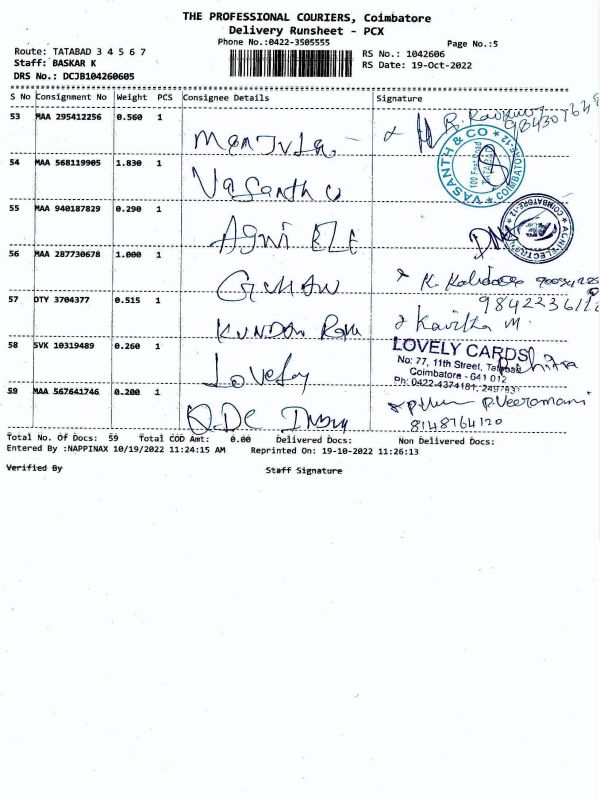 THE PROFESSIONAL COURIERS, Coimbatore
Delivery Runsheet - PCX
Phone No.:0422-3505555
Page No.:5
Route: TATABAD 3 4 5 6 7
Staff: BASKAR K
DRS No.: DCJB104260605
RS No.: 1042606
RS Date: 19-Oct-2022
S No Consignment No Weight PCS Consignee Details Signature
53 MAA 295412256 0.560 1
54 MAA 568119905 1.830 1 Vasanth
VASANTH & CO * COIMBATORE-12 *
100 Feet Road
55 MAA 940187829 0.290 1 Agni ELE
56 MAA 287730678 1.000 1
57 DTY 3704377 0.515 1 KUNDAN Ram Kavitha M.
9842236112
58 SVK 10319489 0.260 1 Lovely
LOVELY CARDS
No: 77, 11th Street, Tatabad
Coimbatore - 641 012
Ph: 0422-4374181, 2497837
59 MAA 567641746 0.200 1 P.Veeramani
8148764120
Total No. Of Docs: 59 Total COD Amt: 0.00 Delivered Docs: Non Delivered Docs:
Entered By :NAPPINAX 10/19/2022 11:24:15 AM Reprinted On: 19-10-2022 11:26:13
Verified By Staff Signature